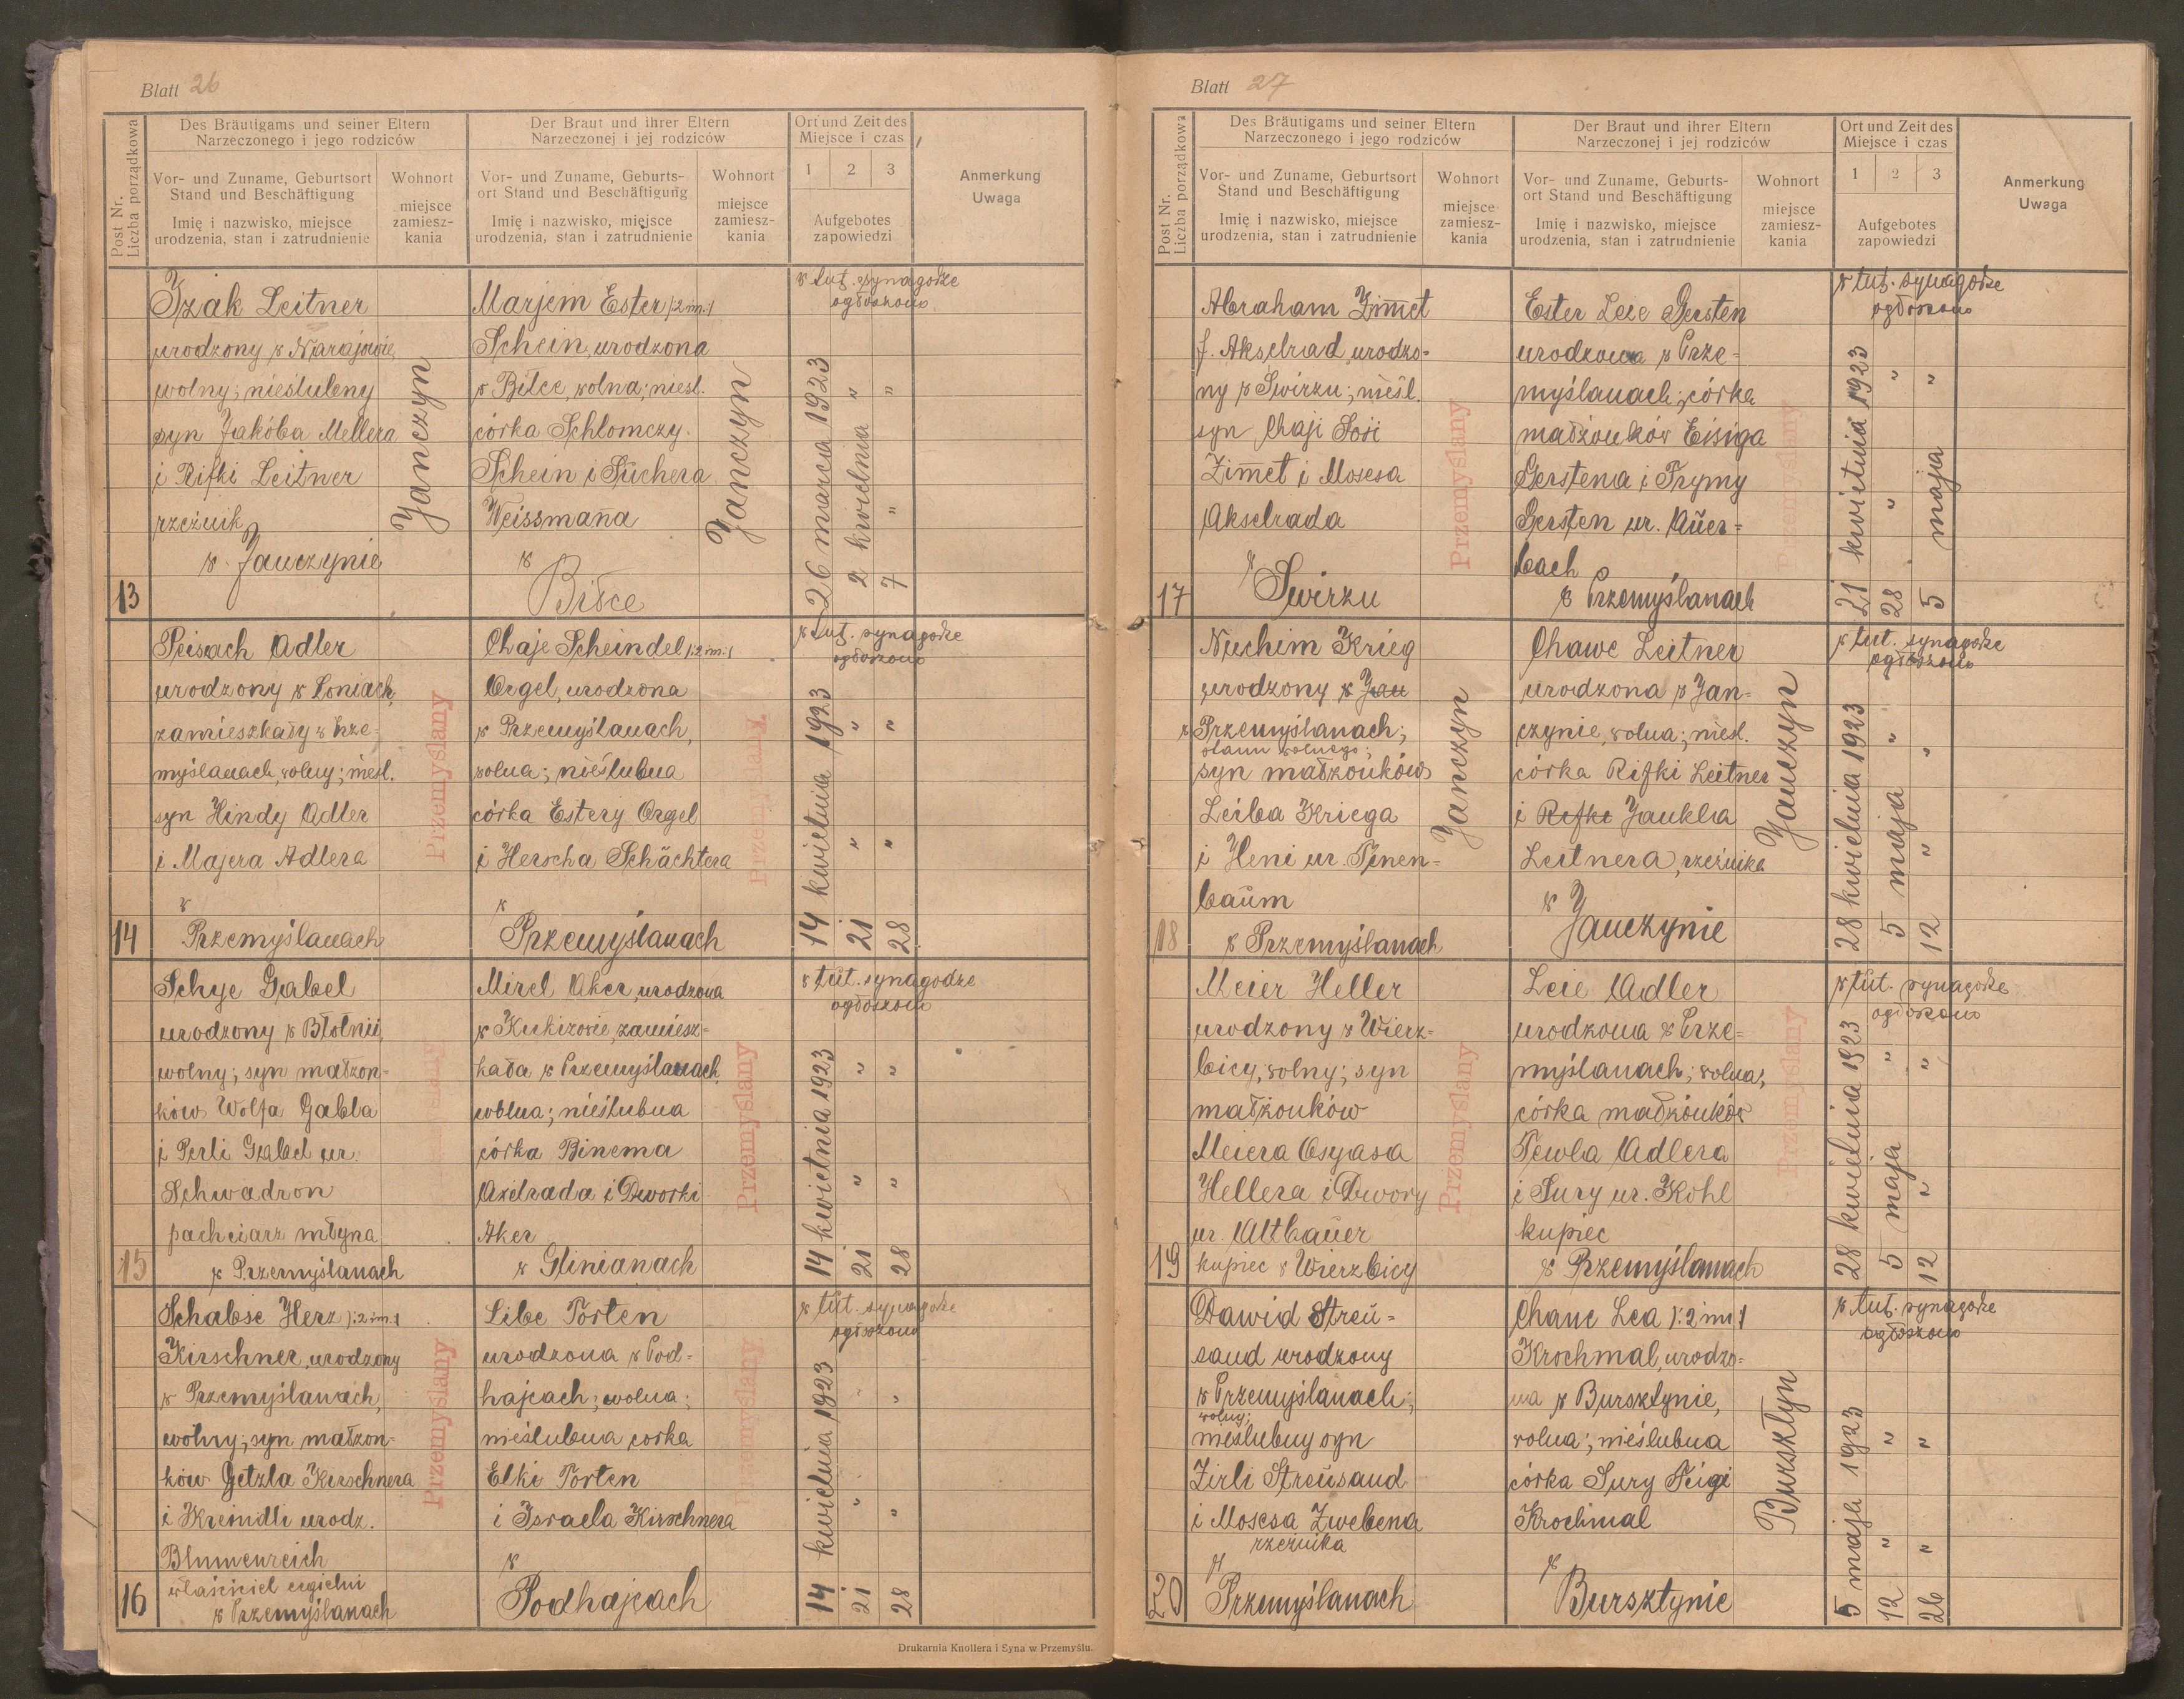 Blatt 26
Post Nr.
Liczba porządkowa
Des Bräutigams und seiner Eltern
Narzeczonego i jego rodziców
Der Braut und ihrer Eltern
Narzeczonej i jej rodziców
Ort und Zeit des
Miejsce i czas
Vor- und Zuname, Geburtsort
Stand und Beschäftigung
Imię i nazwisko, miejsce
urodzenia, stan i zatrudnienie
Wohnort
miejsce
zamiesz-
kania
Vor- und Zuname, Geburts-
ort Stand und Beschäftigung
Imię i nazwisko, miejsce
urodzenia, stan i zatrudnienie
Wohnort
miejsce
zamiesz-
kania
1 2 3
Aufgebotes
zapowiedzi
Anmerkung
Uwaga
13
Izak Leitner
urodzony w Narajowie,
wolny; nieślubny
syn Jakóba Mellera
i Rifki Leitner
rzeźnik
w Janczynie
Janczyn
Marjem Ester /:2 im:/
Schein, urodzona
w Bilce, wolna; nieśl.
córka Schlomczy
Schein i Süchera
Weissmana
w
Biłce
Janczyn
w tut. synagodze
ogłoszono
26 marca 1923
2 kwietnia "
7 " "
14
Peisach Adler
urodzony w Łoniach,
zamieszkały w Prze-
myślanach, wolny; nieśl.
syn Hindy Adler
i Majera Adlera
w
Przemyślanach
Przemyślany
Chaje Scheindel /:2 im:/
Orgel, urodzona
w Przemyślanach,
wolna; nieślubna
córka Estery Orgel
i Herscha Schächtera
w
Przemyślanach
Przemyślany
w tut. synagodze
ogłoszono
14 kwietnia 1923
21 " "
28 " "
15
Schye Gabel
urodzony w Błotnii,
wolny; syn małżon-
ków Wolfa Gabla
i Perli Gabel ur.
Schwadron
pachciarz młyna
w Przemyślanach
Przemyślany
Mirel Aker, urodzona
w Kukizowie, zamiesz-
kała w Przemyślanach,
wolna; nieślubna
córka Binema
Axelrada i Dworki
Aker
w Glinianach
Przemyślany
w tut. synagodze
ogłoszono
14 kwietnia 1923
21 " "
28 " "
16
Schabse Herz /:2 im:/
Kirschner, urodzony
w Przemyślanach,
wolny; syn małżon-
ków Getzla Kirschnera
i Kreindli urodz.
Blumenreich
właściciel cegielni
w Przemyślanach
Przemyślany
Libe Torten
urodzona w Pod-
hajcach; wolna;
nieślubna córka
Elki Torten
i Israela Kirschnera
w
Podhajcach
Przemyślany
w tut. synagodze
ogłoszono
14 kwietnia 1923
21 " "
28 " "
Drukarnia Knollera i Syna w Przemyślu.
Blatt 27
Post Nr.
Liczba porządkowa
Des Bräutigams und seiner Eltern
Narzeczonego i jego rodziców
Der Braut und ihrer Eltern
Narzeczonej i jej rodziców
Ort und Zeit des
Miejsce i czas
Vor- und Zuname, Geburtsort
Stand und Beschäftigung
Imię i nazwisko, miejsce
urodzenia, stan i zatrudnienie
Wohnort
miejsce
zamiesz-
kania
Vor- und Zuname, Geburts-
ort Stand und Beschäftigung
Imię i nazwisko, miejsce
urodzenia, stan i zatrudnienie
Wohnort
miejsce
zamiesz-
kania
1 2 3
Aufgebotes
zapowiedzi
Anmerkung
Uwaga
17
Abraham Zim̄et
f. Akselrad, urodzo-
ny w Swirzu; nieśl.
syn Chaji Sosi
Zim̄et i Mosesa
Akselrada
w
Swirzu
Przemyślany
Ester Leie Gersten
urodzona w Prze-
myślanach; córka
małżonków Eisiga
Gerstena i Frymy
Gersten ur. Aŭer-
bach
w Przemyślanach
Przemyślany
w tut. synagodze
ogłoszono
21 kwietnia 1923
28 " "
5 maja "
18
Nuchim Krieg
urodzony w Jan
w Przemyślanach;
stanu wolnego;
syn małżonków
Leiba Kriega
i Heni ur. Tenen-
baŭm
w Przemyślanach
Janczyn
Chawe Leitner
urodzona w Jan-
czynie, wolna; nieśl.
córka Rifki Leitner
i Rifki Jankla
Leitnera, rzeźnika
w
Janczynie
Janczyn
w tut. synagodze
ogłoszono
28 kwietnia 1923
5 maja "
12 " "
19
Meier Heller
urodzony w Wierz-
bicy, wolny; syn
małżonków
Meiera Osyasa
Hellera i Dwory
ur. Altbaŭer
kupiec w Wierzbicy
Przemyślany
Leie Adler
urodzona w Prze-
myślanach; wolna;
córka małżonków
Tewla Adlera
i Sury ur. Kohl
kupiec
w Przemyślanach
Przemyślany
w tut. synagodze
ogłoszono
28 kwietnia 1923
5 maja "
12 " "
20
Dawid Streŭ-
sand urodzony
w Przemyślanach;
wolny;
nieślubny syn
Zirli Streŭsand
i Mosesa Zwebena
rzeźnika
w
Przemyślanach
Chane Lea /:2 im:/
Krochmal, urodzo-
na w Bursztynie,
wolna; nieślubna
córka Sury Feigi
Krochmal
w
Bursztynie
Bursztyn
w tut. synagodze
ogłoszono
5 maja 1923
12 " "
26 " "